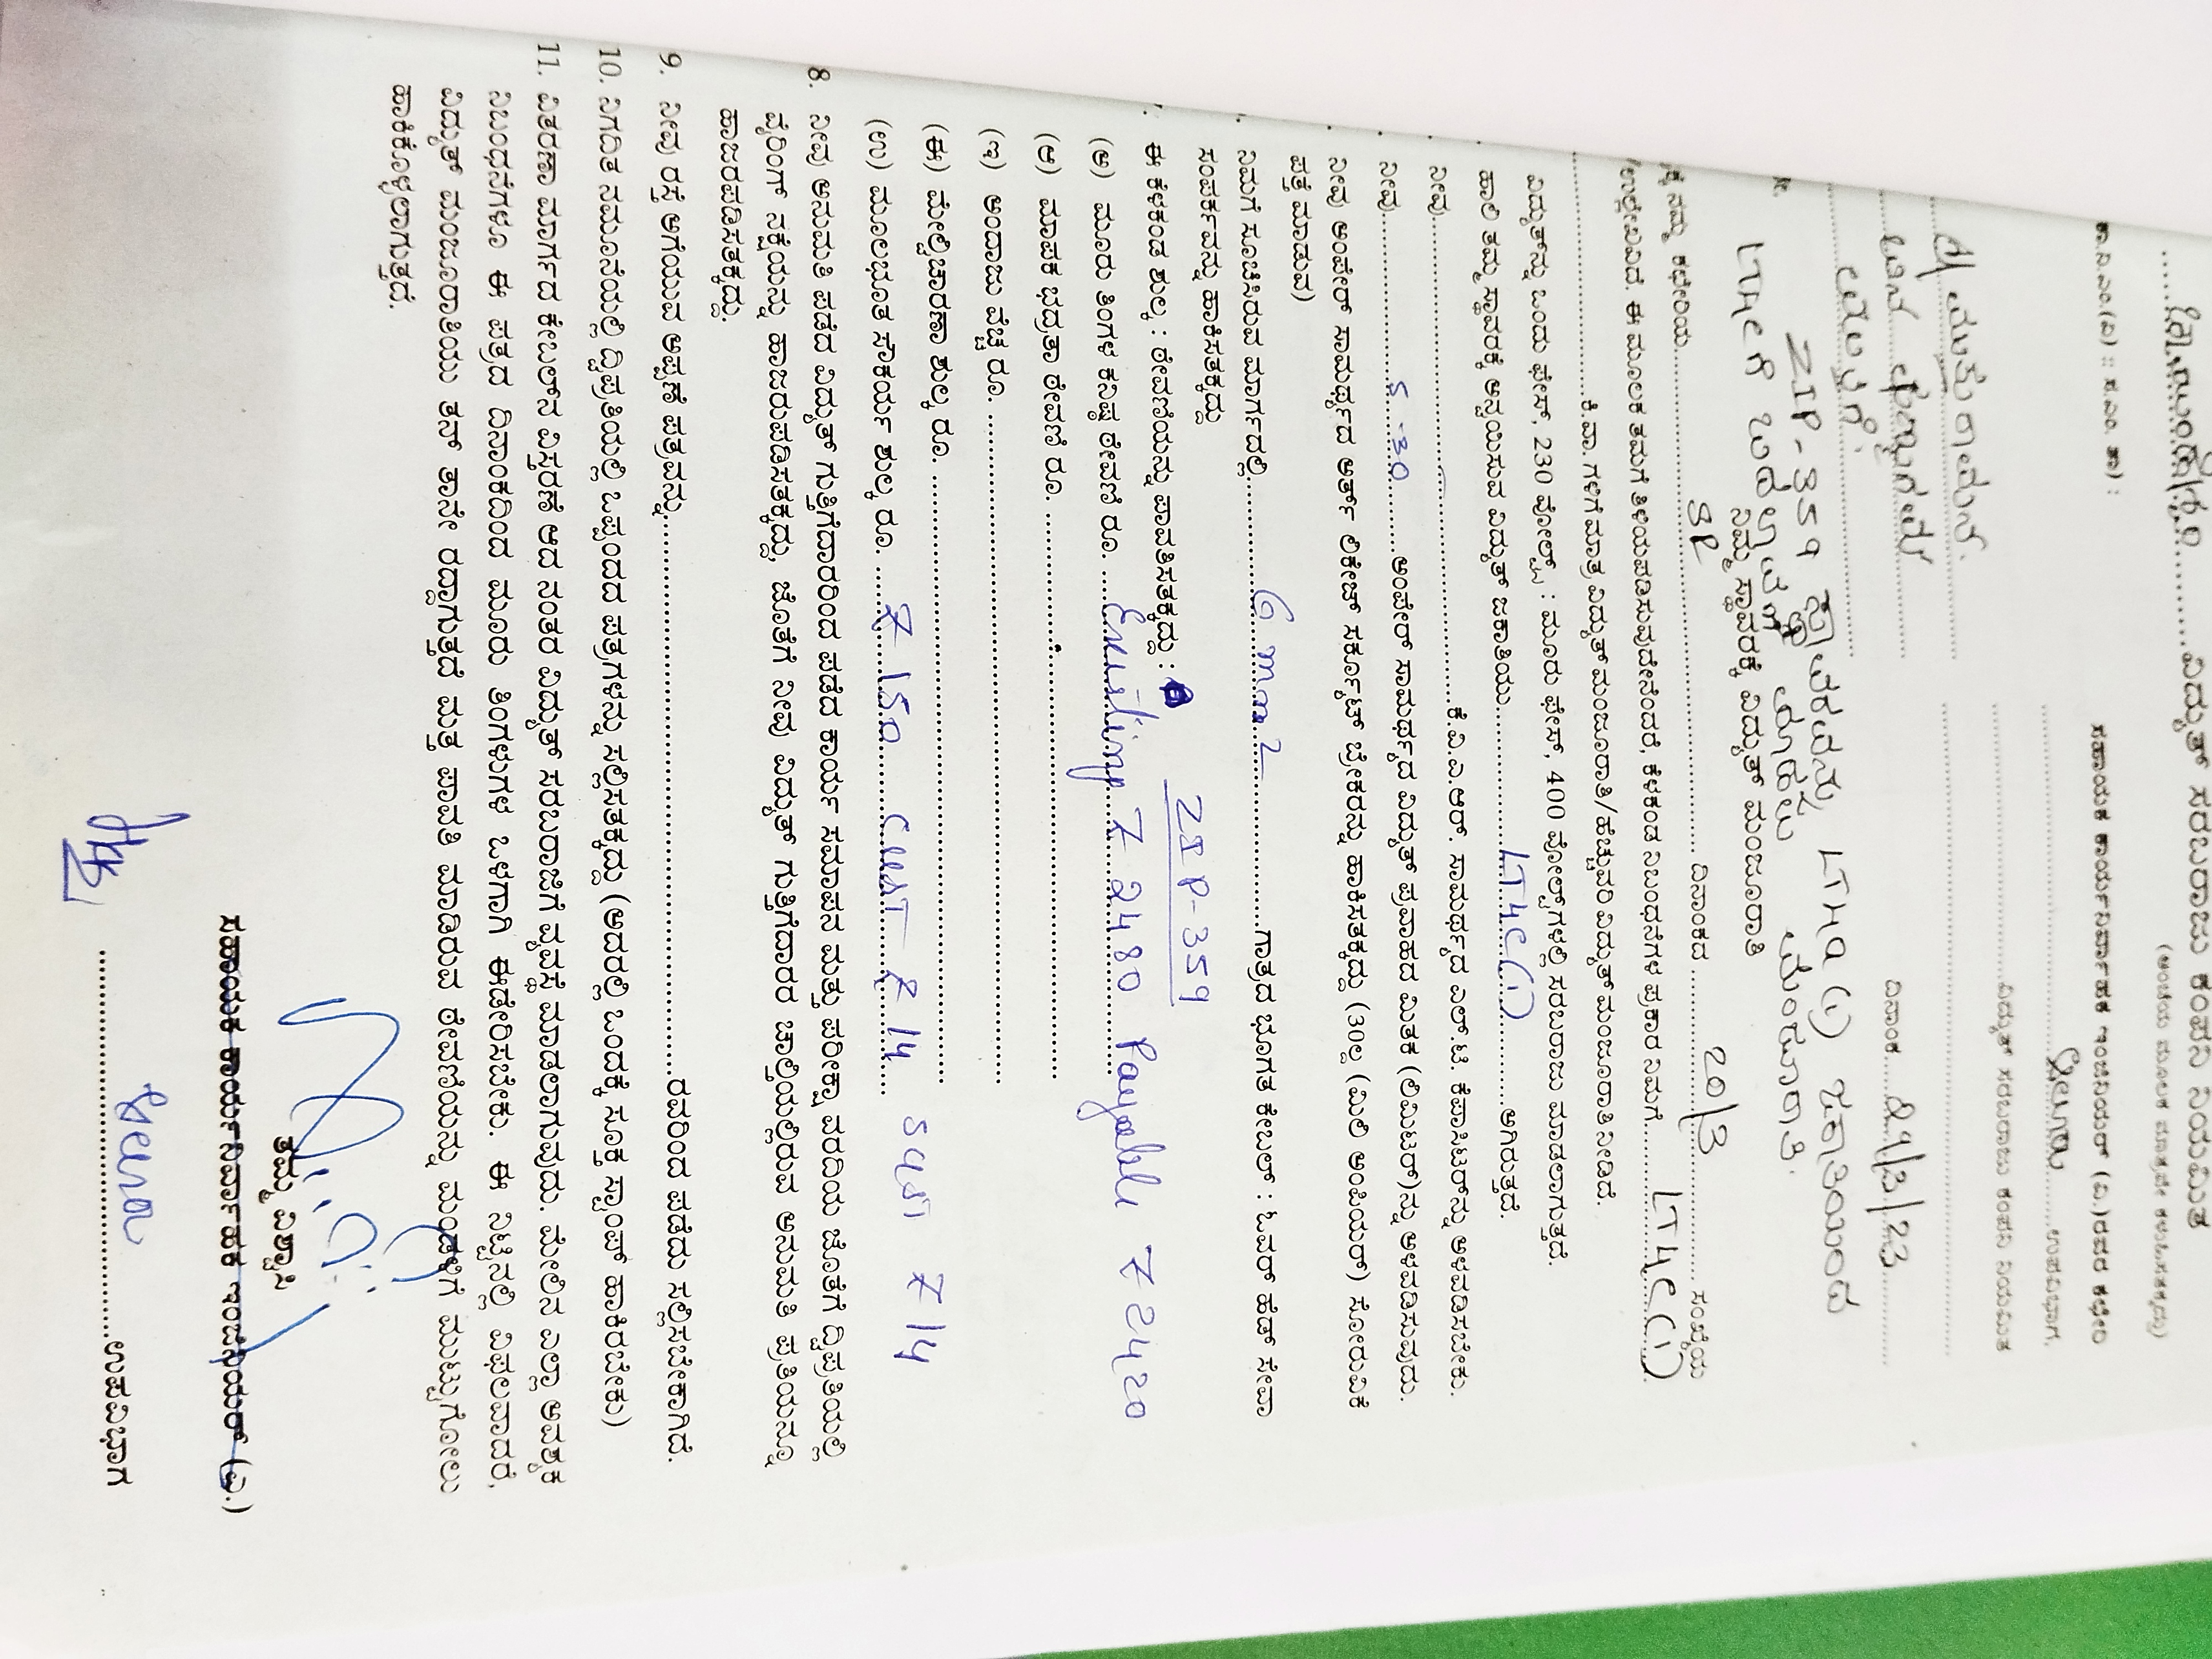 ವಿದ್ಯುತ್ ಸರಬರಾಜು ಕಂಪನಿ ನಿಯಮಿತ
(ಅಂಚೆಯ ಮೂಲಕ ಮಾತ್ರವೇ ಕಳುಹಿಸತಕ್ಕದ್ದು)
ಸಹಾಯಕ ಕಾರ್ಯನಿರ್ವಾಹಕ ಇಂಜಿನಿಯರ್ (ವಿ)ರವರ ಕಛೇರಿ
ಉಪವಿಭಾಗ,
ವಿದ್ಯುತ್ ಸರಬರಾಜು ಕಂಪನಿ ನಿಯಮಿತ
ದಿನಾಂಕ 29/3/23
ZIP-359 ಸ್ಥಾವರವನ್ನು LT4a(1) ಜಕಾತಿಯಿಂದ
ನಿಮ್ಮ ಸ್ಥಾವರಕ್ಕೆ ವಿದ್ಯುತ್ ಮಂಜೂರಾತಿ
ನಮ್ಮ ಕಛೇರಿಯ SR ದಿನಾಂಕದ 20/3 ಸಂಖ್ಯೆಯ
ಉಲ್ಲೇಖವಿದೆ. ಈ ಮೂಲಕ ತಮಗೆ ತಿಳಿಯಪಡಿಸುವುದೇನೆಂದರೆ, ಕೆಳಕಂಡ ನಿಬಂಧನೆಗಳ ಪ್ರಕಾರ ನಿಮಗೆ LT4C(1)
ಕಿ.ವಾ. ಗಳಿಗೆ ಮಾತ್ರ ವಿದ್ಯುತ್ ಮಂಜೂರಾತಿ/ಹೆಚ್ಚುವರಿ ವಿದ್ಯುತ್ ಮಂಜೂರಾತಿ ನೀಡಿದೆ.
ವಿದ್ಯುತ್‌ನ್ನು ಒಂದು ಫೇಸ್, 230 ವೋಲ್ಟ್ಸ್ : ಮೂರು ಫೇಸ್, 400 ವೋಲ್ಟ್‌ಗಳಲ್ಲಿ ಸರಬರಾಜು ಮಾಡಲಾಗುತ್ತದೆ.
ಹಾಲಿ ತಮ್ಮ ಸ್ಥಾವರಕ್ಕೆ ಅನ್ವಯಿಸುವ ವಿದ್ಯುತ್ ಜಕಾತಿಯು LT4C(1) ಆಗಿರುತ್ತದೆ.
ನೀವು ಕೆ.ವಿ.ಎ.ಆರ್. ಸಾಮರ್ಥ್ಯದ ಎಲ್.ಟಿ. ಕೆಪಾಸಿಟರ್‌ನ್ನು ಅಳವಡಿಸಬೇಕು.
ನೀವು 5-30 ಅಂಪೇರ್ ಸಾಮರ್ಥ್ಯದ ವಿದ್ಯುತ್ ಪ್ರವಾಹದ ಮಿತಕ (ಲಿಮಿಟರ್)ನ್ನು ಅಳವಡಿಸುವುದು.
ನೀವು ಅಂಪೇರ್ ಸಾಮರ್ಥ್ಯದ ಅರ್ತ್ ಲಿಕೇಜ್ ಸರ್ಕ್ಯೂಟ್ ಬ್ರೇಕರನ್ನು ಹಾಕಿಸತಕ್ಕದ್ದು (30ಲ್ಲ (ಮಿಲಿ ಅಂಪಿಯರ್) ಸೋರುವಿಕೆ
ಪತ್ತೆ ಮಾಡುವ)
ನಿಮಗೆ ಸೂಚಿಸಿರುವ ಮಾರ್ಗದಲ್ಲಿ 6 mm2 ಗಾತ್ರದ ಭೂಗತ ಕೇಬಲ್ : ಓವರ್ ಹೆಡ್ ಸೇವಾ
ಸಂಪರ್ಕವನ್ನು ಹಾಕಿಸತಕ್ಕದ್ದು
ಈ ಕೆಳಕಂಡ ಶುಲ್ಕ : ಠೇವಣಿಯನ್ನು ಪಾವತಿಸತಕ್ಕದ್ದು : ZIP-359
(ಅ) ಮೂರು ತಿಂಗಳ ಕನಿಷ್ಠ ಠೇವಣಿ ರೂ. Existing ₹ 2480 Payable ₹ 2420
(ಆ) ಮಾಪಕ ಭದ್ರತಾ ಠೇವಣಿ ರೂ.
(ಇ) ಅಂದಾಜು ವೆಚ್ಚ ರೂ.
(ಈ) ಮೇಲ್ವಿಚಾರಣಾ ಶುಲ್ಕ ರೂ.
(ಉ) ಮೂಲಭೂತ ಸೌಕರ್ಯ ಶುಲ್ಕ ರೂ. ₹ 150 CGST ₹ 14 SGST ₹ 14
8. ನೀವು ಅನುಮತಿ ಪಡೆದ ವಿದ್ಯುತ್ ಗುತ್ತಿಗೆದಾರರಿಂದ ಪಡೆದ ಕಾರ್ಯ ಸಮಾಪನ ಮತ್ತು ಪರೀಕ್ಷಾ ವರದಿಯ ಜೊತೆಗೆ ದ್ವಿಪ್ರತಿಯಲ್ಲಿ
ವೈರಿಂಗ್ ನಕ್ಷೆಯನ್ನು ಹಾಜರುಪಡಿಸತಕ್ಕದ್ದು, ಜೊತೆಗೆ ನೀವು ವಿದ್ಯುತ್ ಗುತ್ತಿಗೆದಾರರ ಚಾಲ್ತಿಯಲ್ಲಿರುವ ಅನುಮತಿ ಪ್ರತಿಯನ್ನೂ
ಹಾಜರುಪಡಿಸತಕ್ಕದ್ದು.
9. ನೀವು ರಸ್ತೆ ಅಗೆಯುವ ಅಪ್ಪಣೆ ಪತ್ರವನ್ನು ರವರಿಂದ ಪಡೆದು ಸಲ್ಲಿಸಬೇಕಾಗಿದೆ.
10. ನಿಗದಿತ ನಮೂನೆಯಲ್ಲಿ ದ್ವಿಪ್ರತಿಯಲ್ಲಿ ಒಪ್ಪಂದದ ಪತ್ರಗಳನ್ನು ಸಲ್ಲಿಸತಕ್ಕದ್ದು (ಅದರಲ್ಲಿ ಒಂದಕ್ಕೆ ಸೂಕ್ತ ಸ್ಟಾಂಪ್ ಹಾಕಿರಬೇಕು)
11. ವಿತರಣಾ ಮಾರ್ಗದ ಕೇಬಲ್‌ನ ವಿಸ್ತರಣೆ ಆದ ನಂತರ ವಿದ್ಯುತ್ ಸರಬರಾಜಿಗೆ ವ್ಯವಸ್ಥೆ ಮಾಡಲಾಗುವುದು. ಮೇಲಿನ ಎಲ್ಲಾ ಅವಶ್ಯಕ
ನಿಬಂಧನೆಗಳೂ ಈ ಪತ್ರದ ದಿನಾಂಕದಿಂದ ಮೂರು ತಿಂಗಳುಗಳ ಒಳಗಾಗಿ ಈಡೇರಿಸಬೇಕು. ಈ ನಿಟ್ಟಿನಲ್ಲಿ ವಿಫಲವಾದರೆ,
ವಿದ್ಯುತ್ ಮಂಜೂರಾತಿಯು ತನ್ ತಾನೇ ರದ್ದಾಗುತ್ತದೆ ಮತ್ತು ಪಾವತಿ ಮಾಡಿರುವ ಠೇವಣಿಯನ್ನು ಮಂಡಳಿಗೆ ಮುಟ್ಟುಗೋಲು
ಹಾಕಿಕೊಳ್ಳಲಾಗುತ್ತದೆ.
ತಮ್ಮ ವಿಶ್ವಾಸಿ
ಸಹಾಯಕ ಕಾರ್ಯನಿರ್ವಾಹಕ ಇಂಜಿನಿಯರ್ (ವಿ.)
ಉಪವಿಭಾಗ